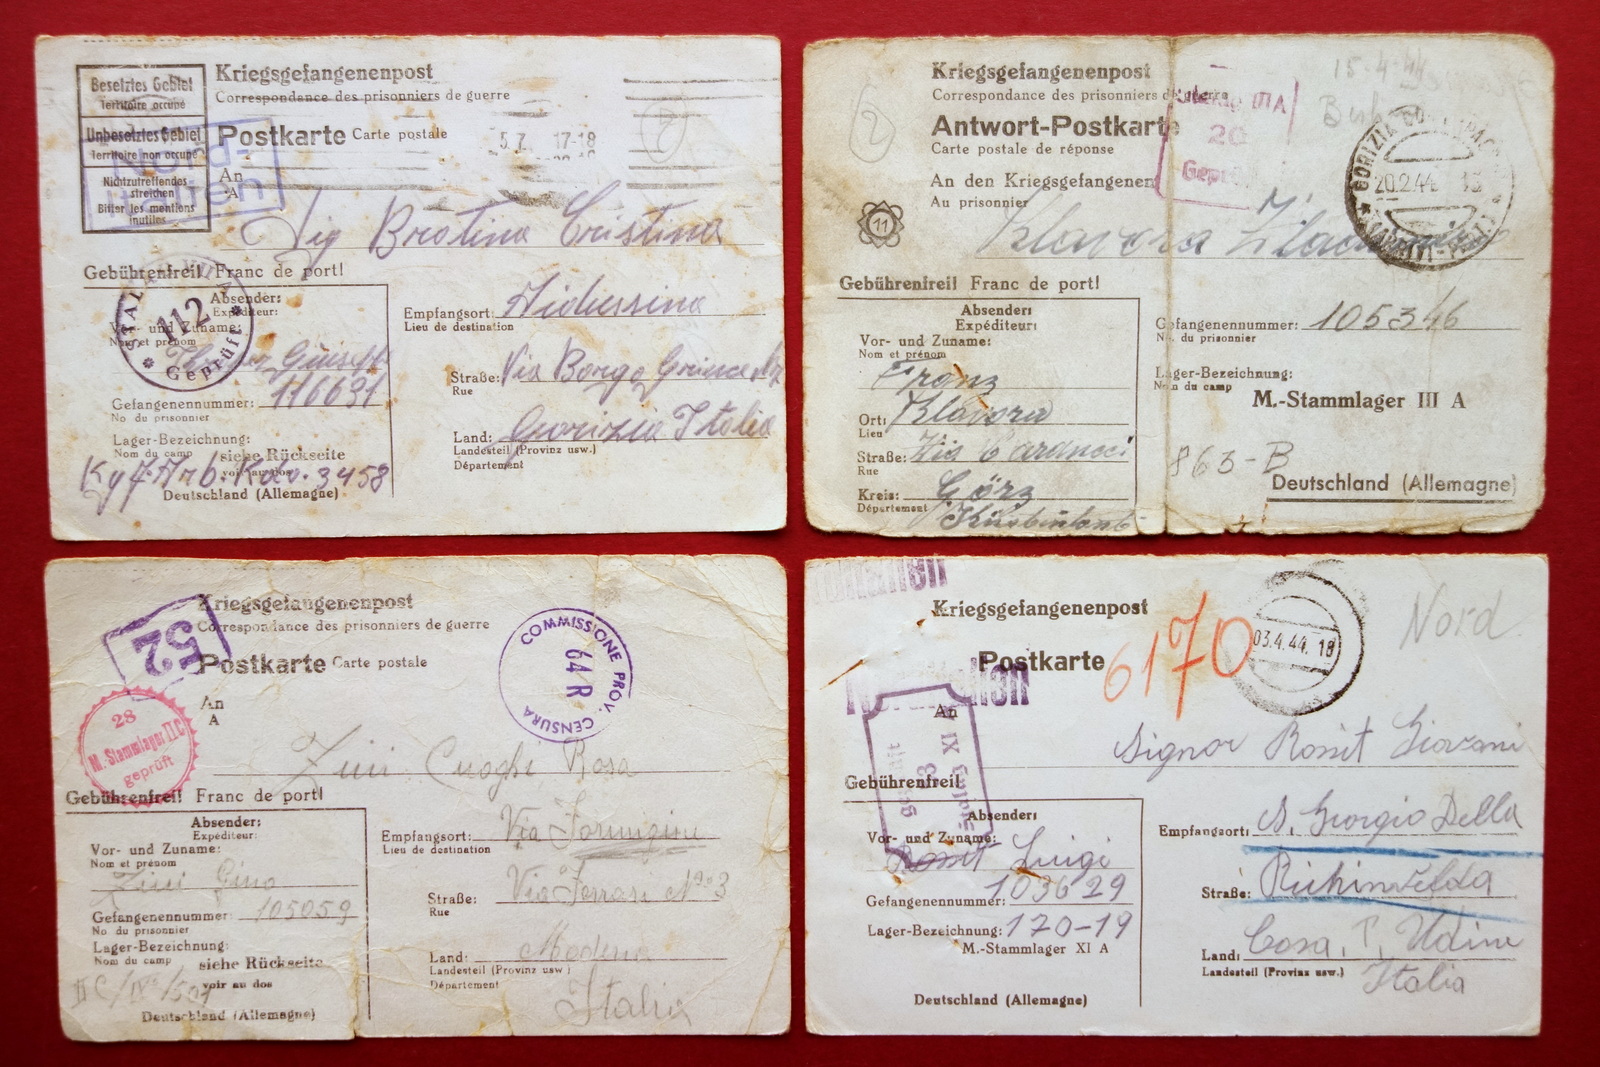 Besetztes Gebiet
Territoire occupé
Unbesetztes Gebiet
Territoire non occupé
Nichtzutreffendes
streichen
Biffer les mentions
inutiles
Nord-
italien
Kriegsgefangenenpost
Correspondance des prisonniers de guerre
Postkarte Carte postale
5.7. 17-18
An
A
Sig Bratina Cristina
Gebührenfrei! Franc de port!
STALAG VII A
112
Geprüft
Absender:
Expéditeur:
Vor- und Zuname:
Nom et prénom
116631
Gefangenennummer:
No. du prisonnier
Lager-Bezeichnung:
Nom du camp siehe Rückseite
voir au dos
3458
Deutschland (Allemagne)
Empfangsort: Aidussina
Lieu de destination
Straße: Via Borgo
Rue
Land: Gorizia Italia
Landesteil (Provinz usw.)
Département
Kriegsgefangenenpost
Correspondance des prisonniers de guerre
Antwort-Postkarte
Carte postale de réponse
An den Kriegsgefangenen
Au prisonnier
15-4-44
Stalag III A
20
Geprüft
GORIZIA
20.2.44
11
Klavora
Gebührenfrei! Franc de port!
Absender:
Expéditeur:
Vor- und Zuname:
Nom et prénom
Franz
Klavora
Ort:
Lieu
Straße: Via Carducci
Rue
Kreis: Görz
Département Küstenland
Gefangenennummer: 105346
No. du prisonnier
Lager-Bezeichnung:
Nom du camp
M.-Stammlager III A
863-B
Deutschland (Allemagne)
52
Kriegsgefangenenpost
Correspondance des prisonniers de guerre
Postkarte Carte postale
COMMISSIONE PROV. CENSURA
64 R
28
M. Stammlager II C
geprüft
An
A
Zini Cuoghi Rosa
Gebührenfrei! Franc de port!
Absender:
Expéditeur:
Vor- und Zuname:
Nom et prénom
Zini Gino
Gefangenennummer: 105059
No. du prisonnier
Lager-Bezeichnung:
Nom du camp siehe Rückseite
voir au dos
Deutschland (Allemagne)
Empfangsort: Via Formigine
Lieu de destination
Straße: Via Ferrari No 3
Rue
Land: Modena
Landesteil (Provinz usw.)
Département
Italia
Norditalien
Kriegsgefangenenpost
Postkarte
6170
03.4.44. 18
Nord
Norditalien
An
Signor Rosit Giovani
Gebührenfrei!
Absender:
Vor- und Zuname:
Rosit Luigi
Gefangenennummer: 103629
Lager-Bezeichnung: 170-19
M.-Stammlager XI A
Deutschland (Allemagne)
Empfangsort: S. Giorgio Della
Straße: Richinvelda
Land: Cosa, P. Udine
Landesteil (Provinz usw.)
Italia